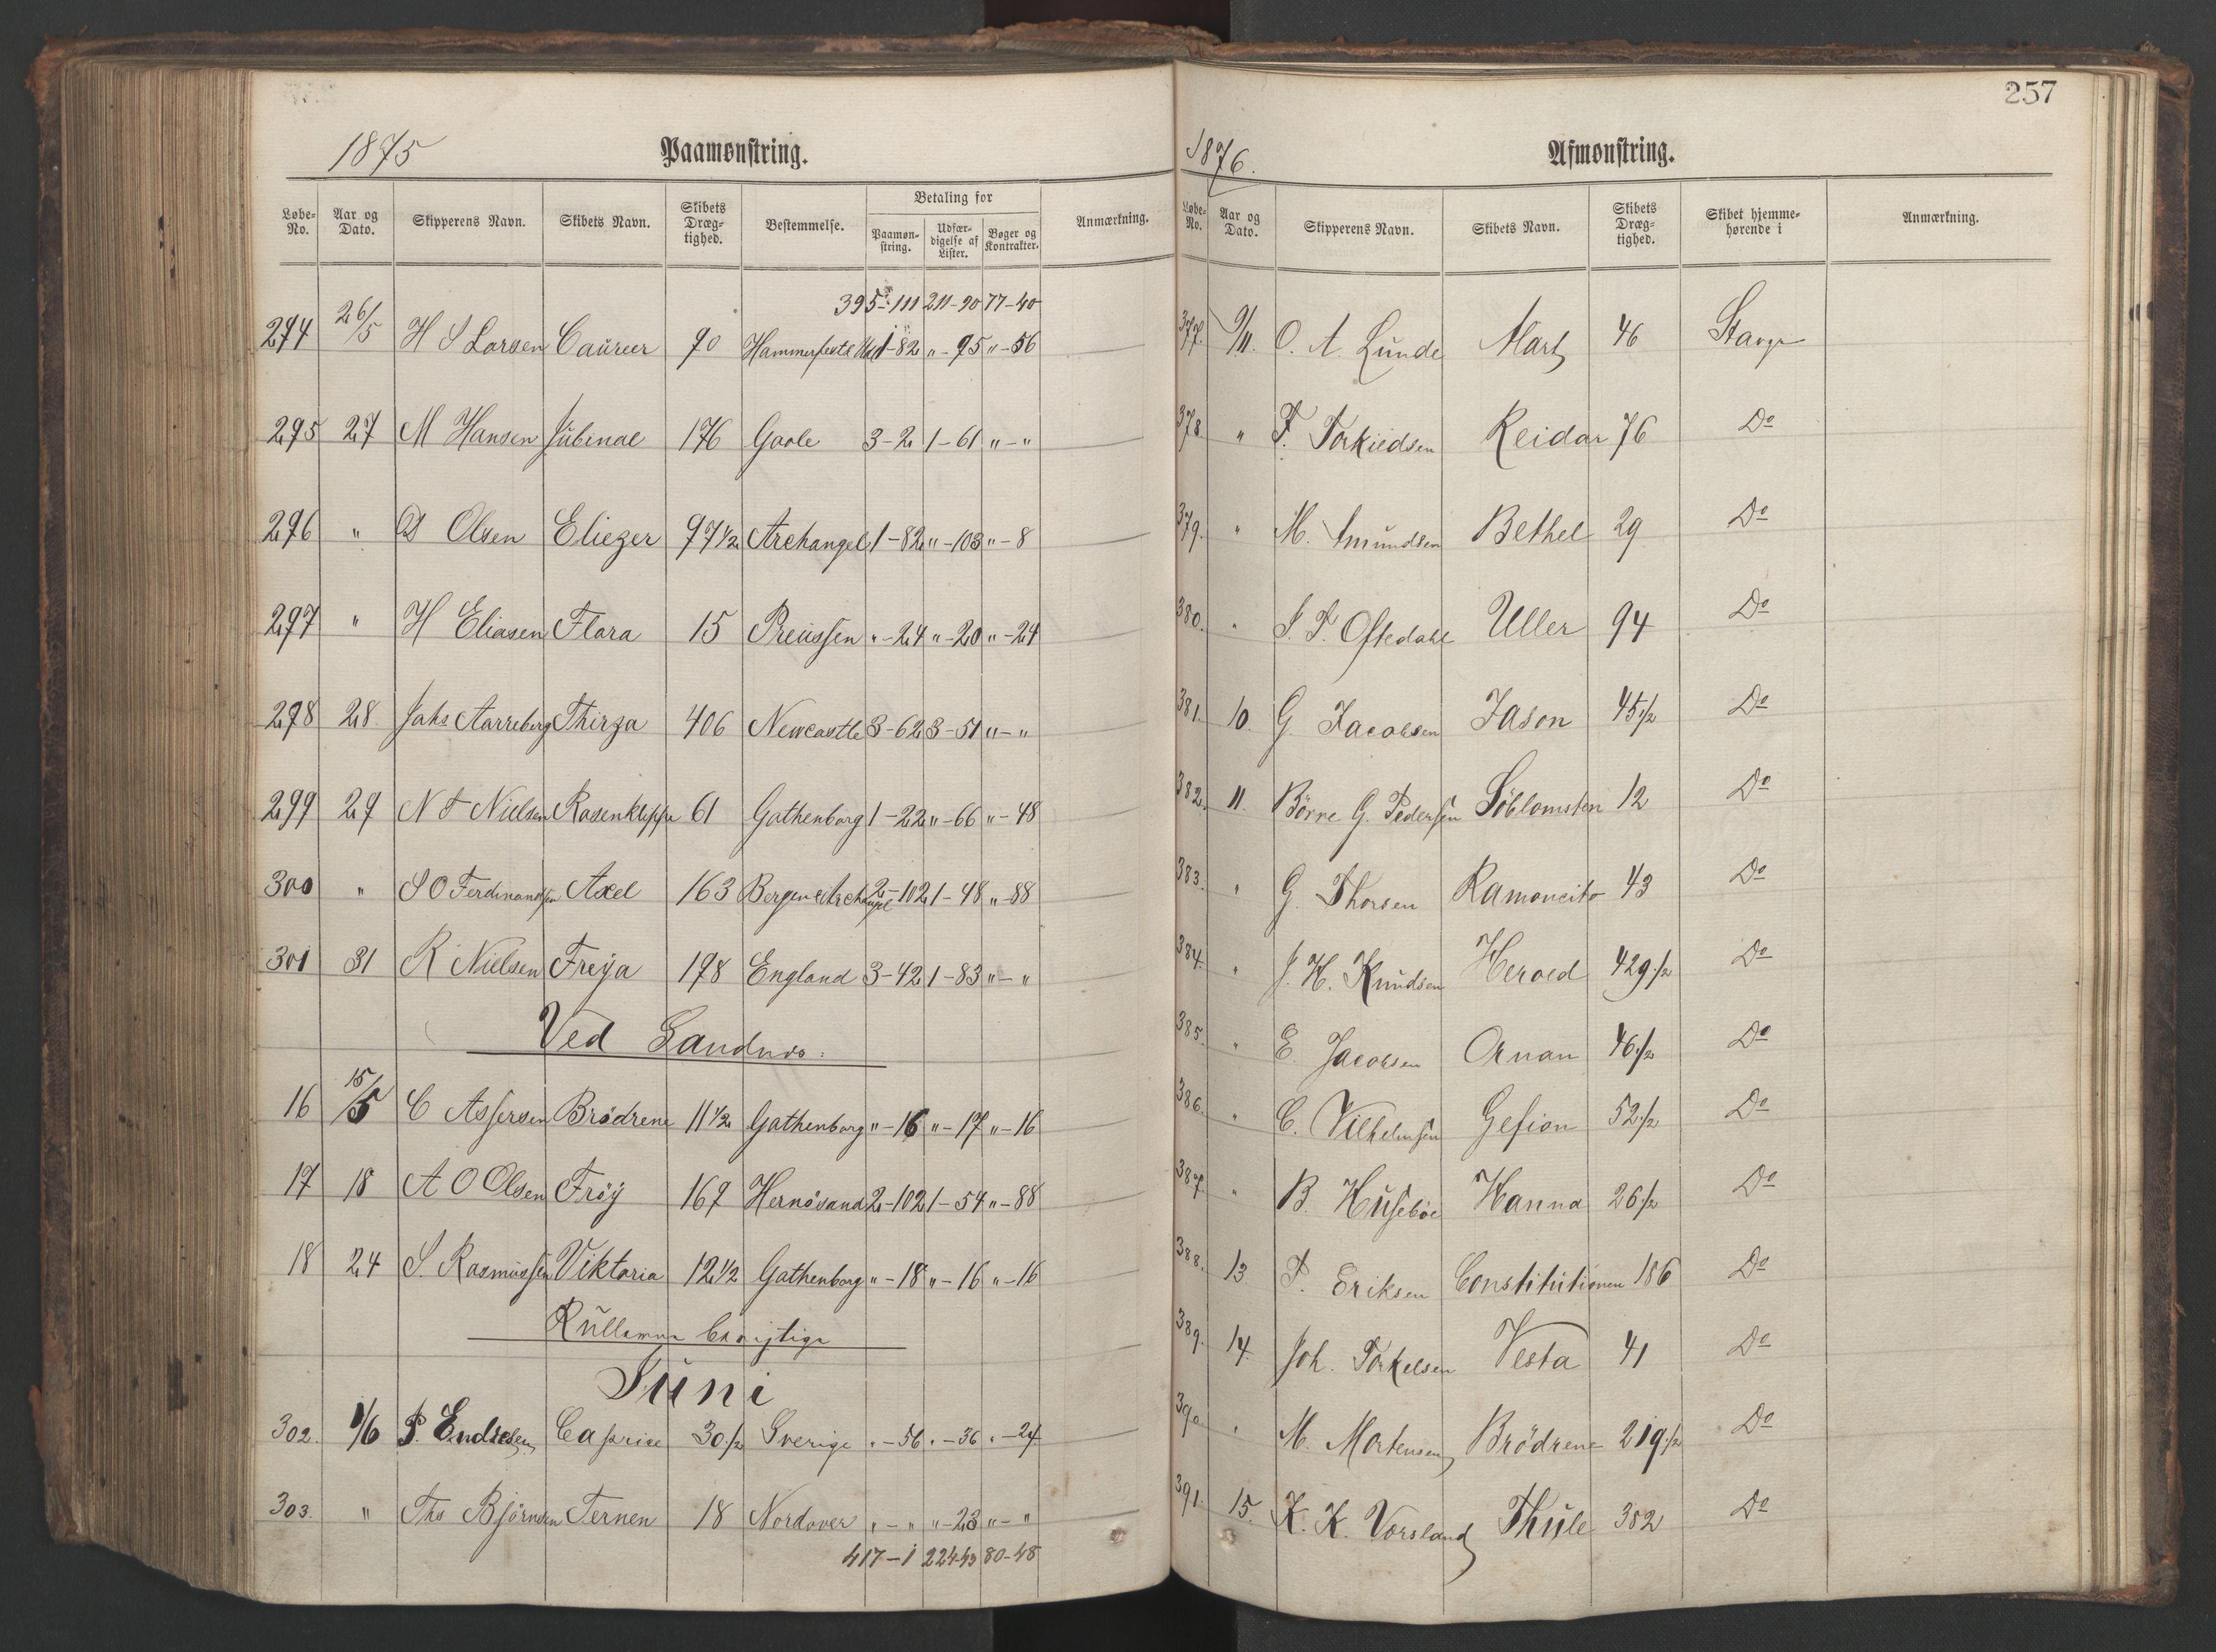 1875 Paamønstring.
Løbe-No. Aar og Dato. Skipperens Navn. Skibets Navn. Skibets Dræg-tighed. Bestemmelse. Betaling for Paamøn-string. Udfær-digelse af Lister. Bøger og Kontrakter. Anmærkning.
395-111 211-90 77-40
294 26/5 H S Larsen Caurier 90 Hammerfest 1-82 „-95 „-56
295 27 M Hansen Jübinal 176 Goole 3-2 1-61 „-„
296 „ O Olsen Eliezer 97 1/2 Archangel 1-82 „-103 „-8
297 „ H Eliasen Flora 15 Preüssen „-24 „-20 „-24
298 28 Jahs Aarreberg Thirza 406 Newcastle 3-62 3-51 „-„
299 29 N T Nielsen Rosenkleppe 61 Gothenborg 1-22 „-66 „-48
300 „ S O Ferdinandsen Axel 163 Bergen & Archangel 2-102 1-48 „-88
301 31 R Nielsen Freÿa 198 England 3-42 1-83 „-„
Ved Sandnes:
16 15/5 C Assersen Brödrene 11 1/2 Gothenborg „-16 „-17 „-16
17 18 A O Olsen Fröÿ 169 Hernösand 2-102 1-54 „-88
18 24 S. Rasmüssen Viktoria 12 1/2 Gothenborg „-18 „-16 „-16
Rüllerne
Jüni
302. 1/6 P. Endresen Caprice 30 1/2 Sverige „-56 „-36 „-24
303. „ Ths Björnsen Ternen 18 Nordover „-„ „-23 „-„
417-1 224-43 80-48
257
1876. Afmønstring.
Løbe-No. Aar og Dato. Skipperens Navn. Skibets Navn. Skibets Dræg-tighed. Skibet hjemme-hørende i Anmærkning.
377. 9/11. O. A. Lünde Mary 46 Stavgr
378 „ T. Torkildsen Reidar 76 Do
379. „ M. Amündsen Bethel 29 Do
380. „ S. T. Oftedahl Uller 94 Do
381. 10. G. Jacobsen Jason 45 1/2 Do
382. 11. Börre G. Pedersen Söblomsten 12 Do
383. „ G. Thorsen Ramoncito 43 Do
384. „ J. H. Knüdsen Herold 429 1/2 Do
385. „ E. Jacobsen Ornan 46 1/2 Do
386. „ C. Vilhelmsen Gefion 52 1/2 Do
387. „ B. Hüseböe Hanna 26 1/2 Do
388. 13. T. Eriksen Constitütionen 186 Do
389. 14. Joh. Torkelsen Vesta 41 Do
390. „ M. Mortensen Brödrene 219 1/2 Do
391. 15. K. K. Vorsland Thüle 382 Do